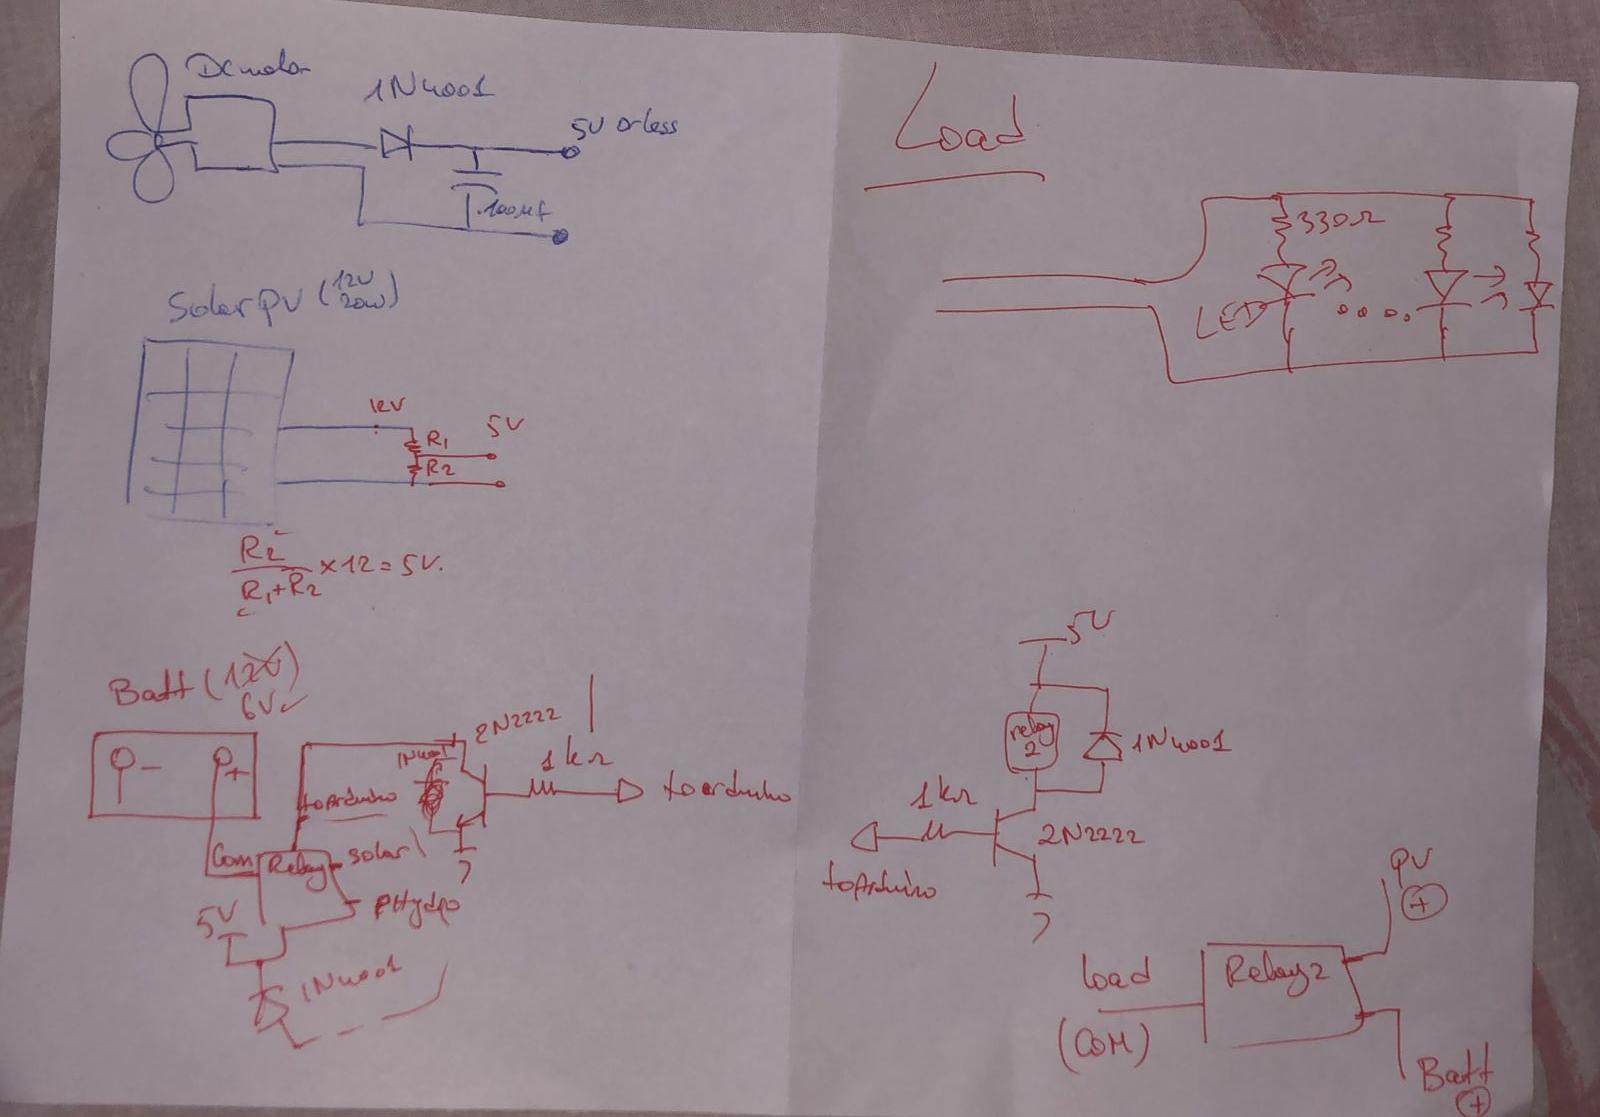 DC motor
1N4001
5V or less
100μf
Solar PV (12V
20W)
12V
R1
5V
R2
R2
R1+R2 ×12=5V.
Batt (12V)
6V
-
+
2N2222
1N4001
1kΩ
to arduino
to Arduino
Com
Relay
solar
pHydro
5V
1N4001
Load
330Ω
LED
5V
relay
2
1N4001
1kΩ
2N2222
to Arduino
PV
+
load
(COM)
Relay2
Batt
+